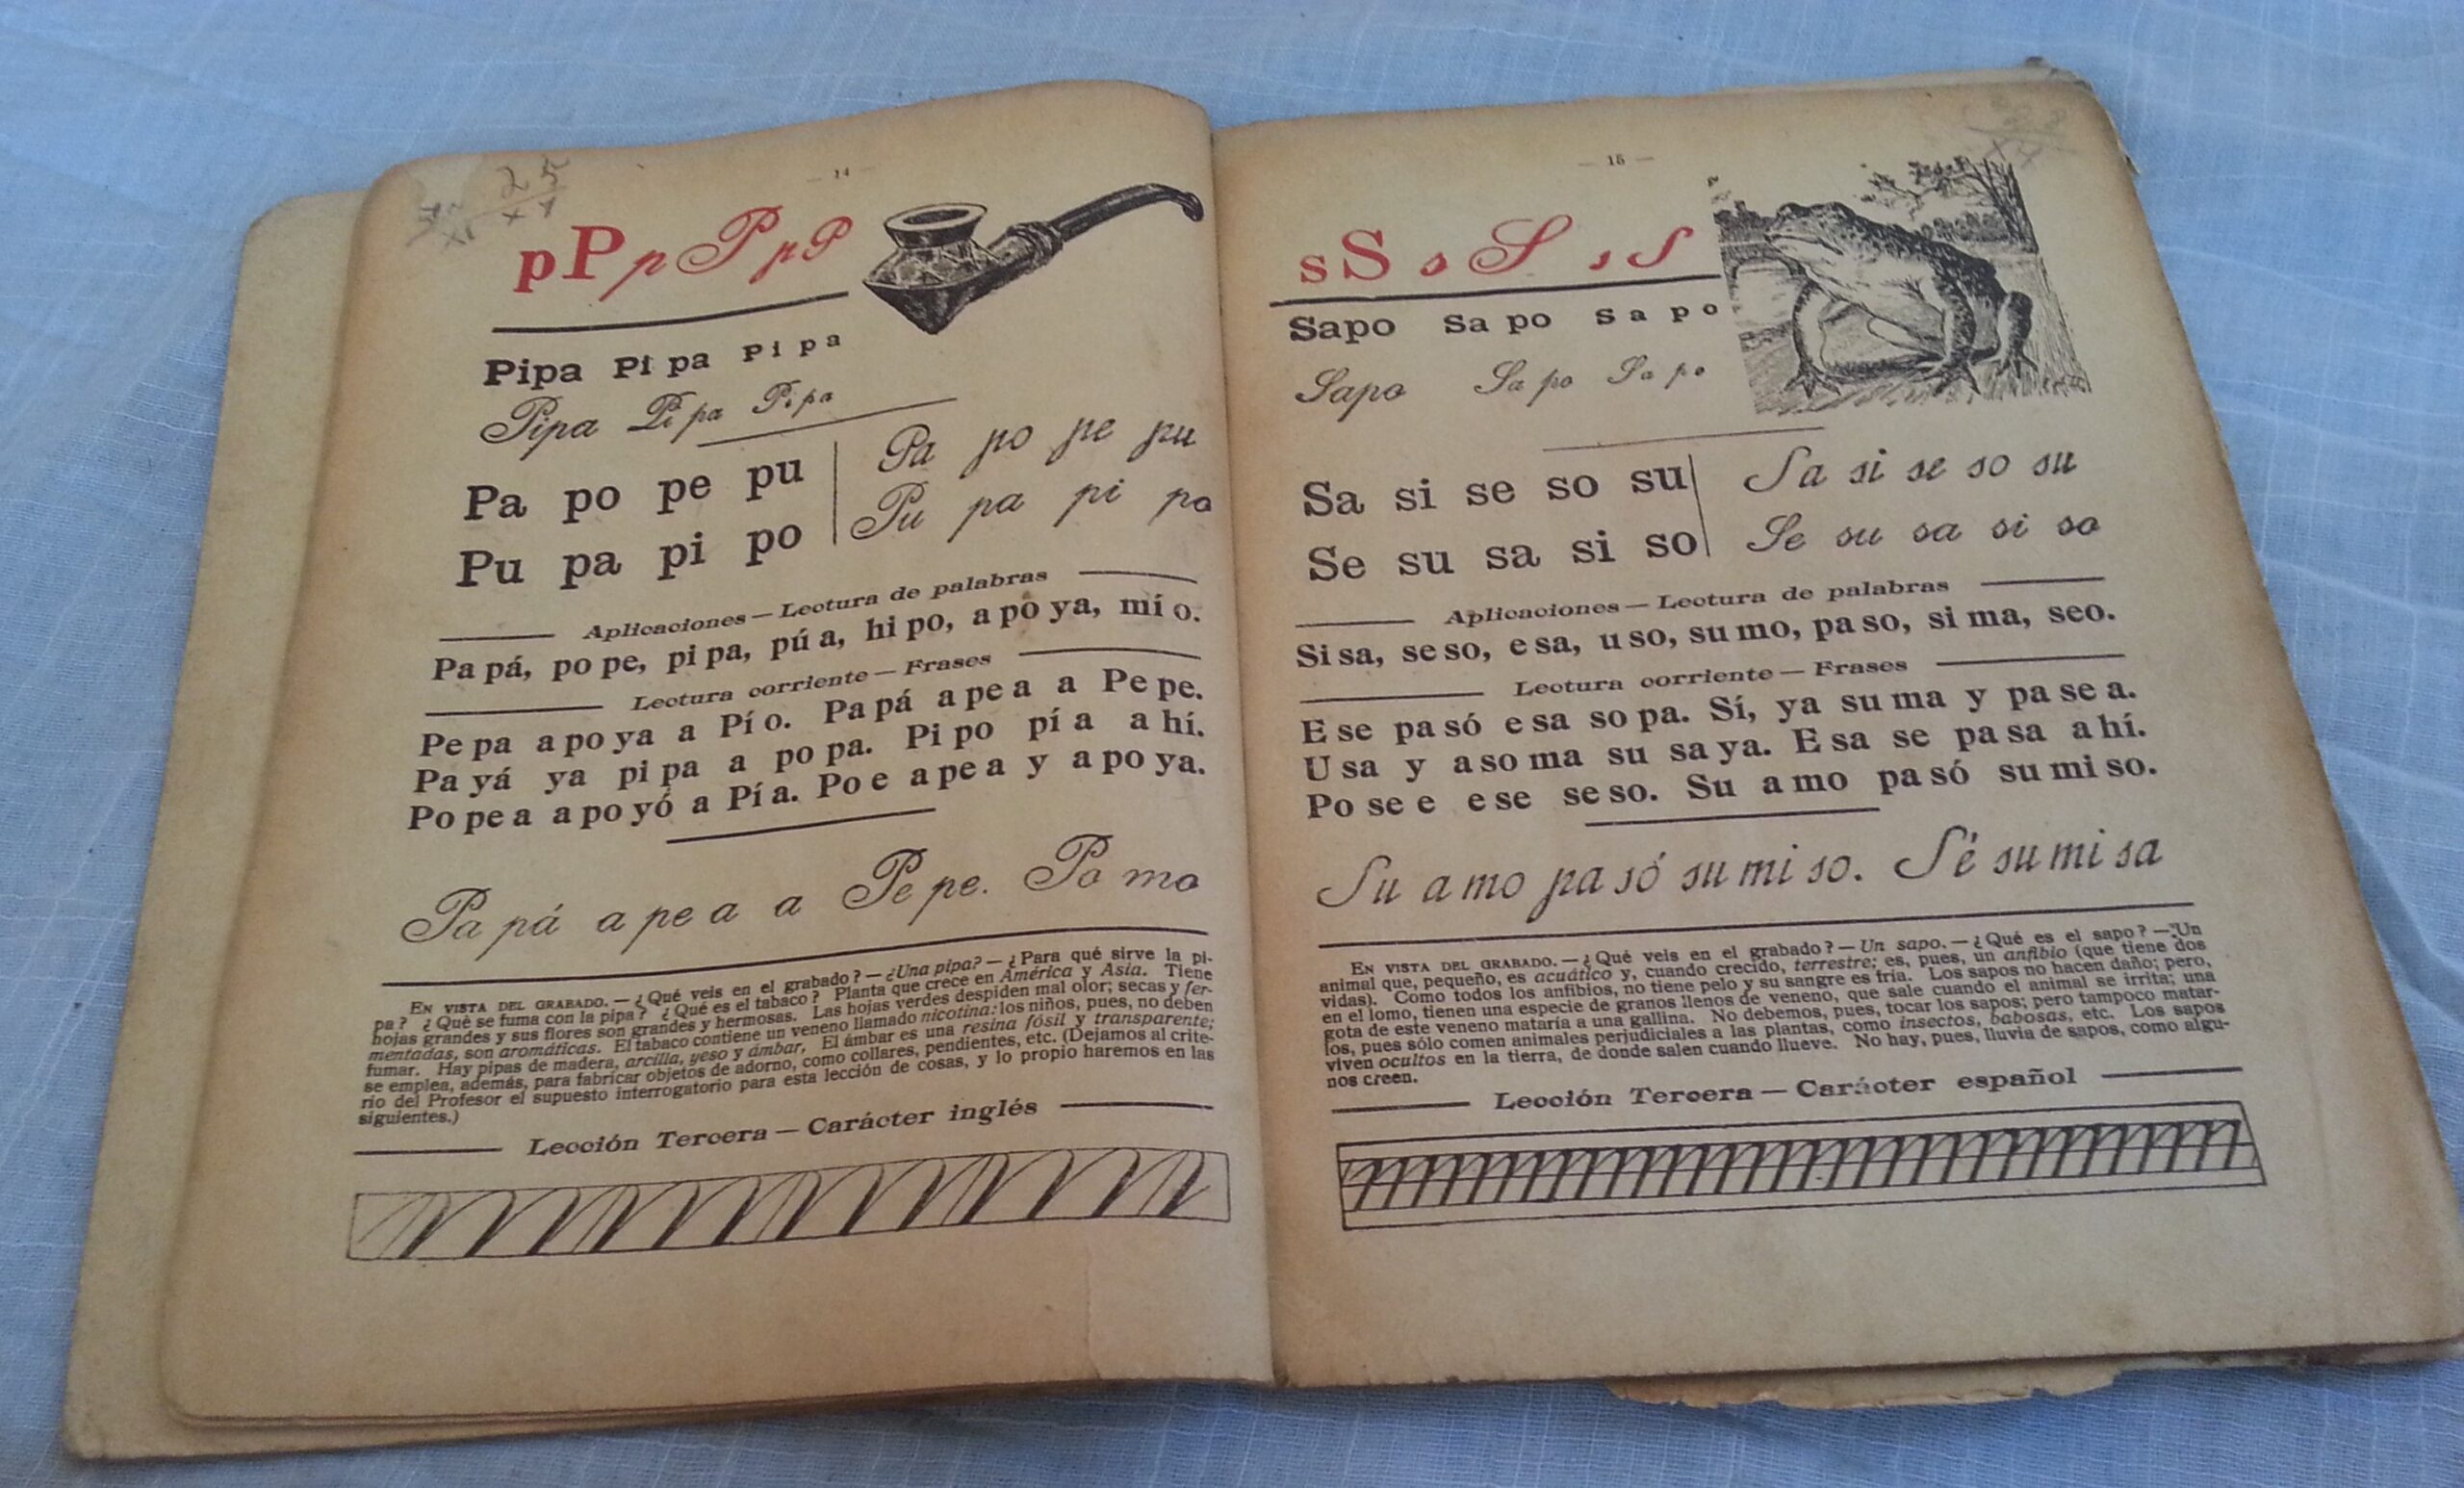 — 14 —
p P p P p P
Pipa Pi pa P i p a
Pipa Pi pa P i p a
Pa po pe pu
Pu pa pi po
Pa po pe pu
Pu pa pi po
Aplicaciones — Lectura de palabras
Pa pá, po pe, pi pa, pú a, hi po, a po ya, mí o.
Lectura corriente — Frases
Pe pa a po ya a Pí o. Pa pá a pe a a Pe pe.
Pa yá ya pi pa a po pa. Pi po pí a a hí.
Po pe a a po yó a Pí a. Po e a pe a y a po ya.
Pa pá a pe a a Pe pe. Po mo
EN VISTA DEL GRABADO. — ¿Qué veis en el grabado? — ¿Una pipa? — ¿Para qué sirve la pi-
pa? ¿Qué se fuma con la pipa? ¿Qué es el tabaco? Planta que crece en América y Asia. Tiene
hojas grandes y sus flores son grandes y hermosas. Las hojas verdes despiden mal olor; secas y fer-
mentadas, son aromáticas. El tabaco contiene un veneno llamado nicotina: los niños, pues, no deben
fumar. Hay pipas de madera, arcilla, yeso y ámbar. El ámbar es una resina fósil y transparente;
se emplea, además, para fabricar objetos de adorno, como collares, pendientes, etc. (Dejamos al crite-
rio del Profesor el supuesto interrogatorio para esta lección de cosas, y lo propio haremos en las
siguientes.)
Lección Tercera — Carácter inglés
— 15 —
s S s S s S
Sapo Sa po S a p o
Sapo Sa po S a p o
Sa si se so su
Se su sa si so
Sa si se so su
Se su sa si so
Aplicaciones — Lectura de palabras
Si sa, se so, e sa, u so, su mo, pa so, si ma, seo.
Lectura corriente — Frases
E se pa só e sa so pa. Sí, ya su ma y pa se a.
U sa y a so ma su sa ya. E sa se pa sa a hí.
Po se e e se se so. Su a mo pa só su mi so.
Su a mo pa só su mi so. Sé su mi sa
EN VISTA DEL GRABADO. — ¿Qué veis en el grabado? — Un sapo. — ¿Qué es el sapo? — Un
animal que, pequeño, es acuático y, cuando crecido, terrestre; es, pues, un anfibio (que tiene dos
vidas). Como todos los anfibios, no tiene pelo y su sangre es fría. Los sapos no hacen daño; pero,
en el lomo, tienen una especie de granos llenos de veneno, que sale cuando el animal se irrita; una
gota de este veneno mataría a una gallina. No debemos, pues, tocar los sapos; pero tampoco matar-
los, pues sólo comen animales perjudiciales a las plantas, como insectos, babosas, etc. Los sapos
viven ocultos en la tierra, de donde salen cuando llueve. No hay, pues, lluvia de sapos, como algu-
nos creen.
Lección Tercera — Carácter español